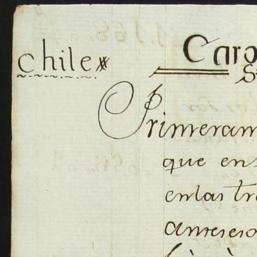 Chile
Carg
Primeram
que en
en las tr